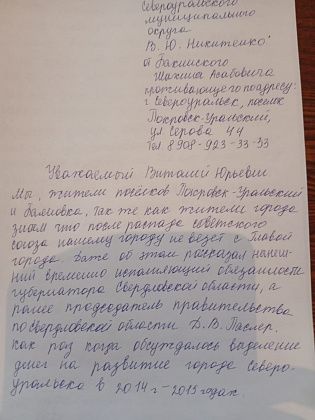 Североуральского
муниципального
округа
В. Ю. Никитенко
от Бакинского
Шахина Асабовича
проживающего по адресу:
г. Североуральск, посёлок
Покровск-Уральский,
ул. Серова 44
Тел. 8908-923-33-53
Уважаемый Виталий Юрьевич
Мы, жители посёлков Покровск-Уральский
и Баяновка, так же как жители города
знаем что после распада советского
союза нашему городу не везёт с Главой
города. Даже об этом рассказал нынеш-
ний временно исполняющий обязанности
губернатора Свердловской области, а
ранее председатель правительства
по Свердловской области Д.В. Паслер.
как раз когда обсуждалось выделение
денег на развитие города Северо-
уральска в 2014г-2015 годах.